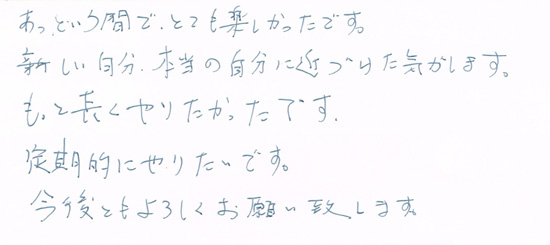 あっという間で、とても楽しかったです。
新しい自分、本当の自分に近づけた気がします。
もっと長くやりたかったです。
定期的にやりたいです。
今後ともよろしくお願い致します。